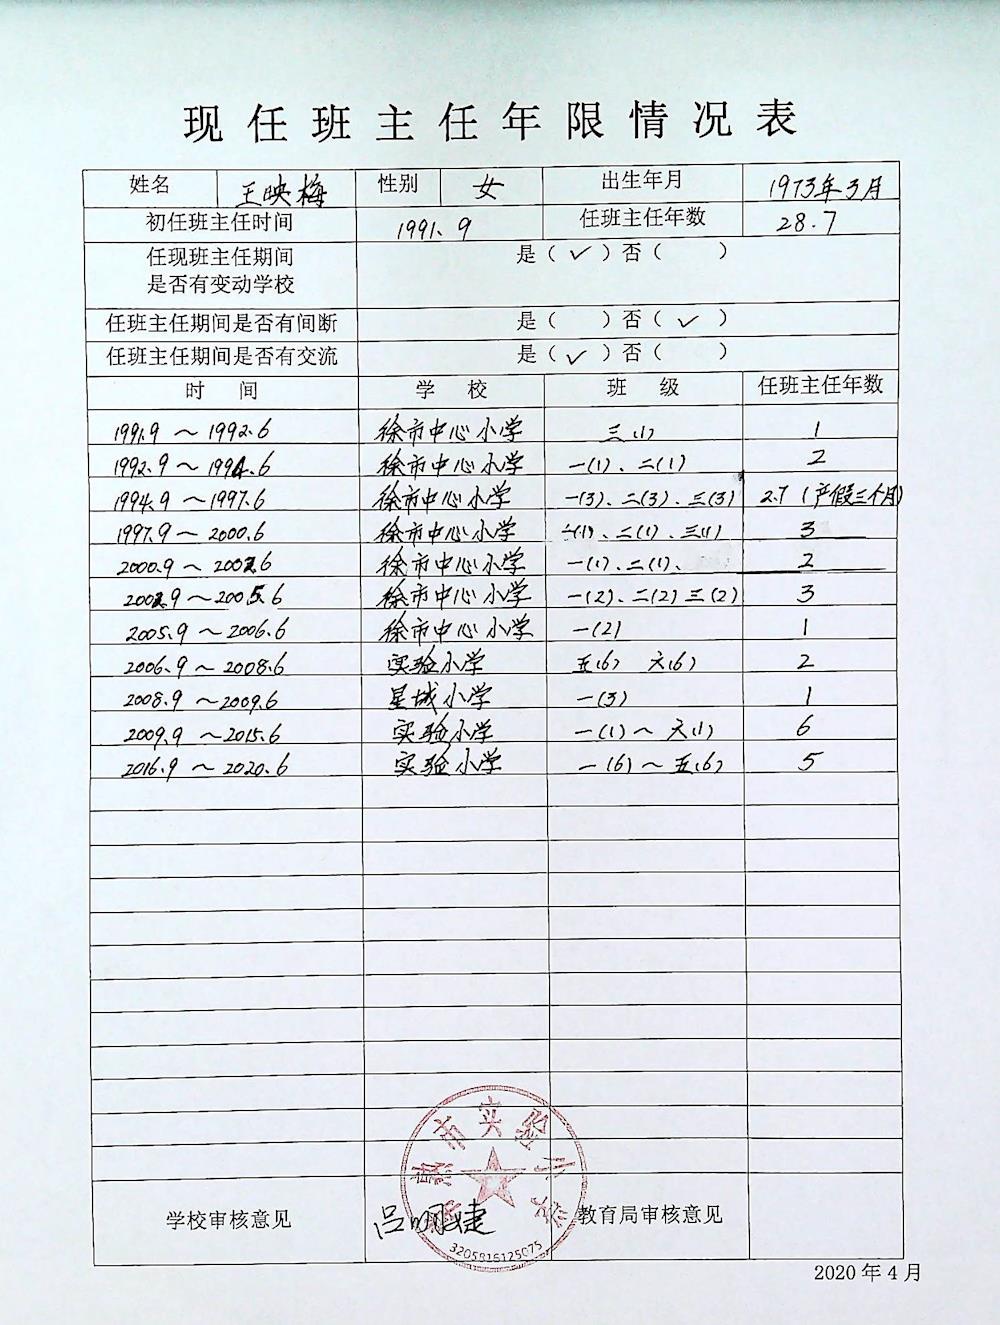 现任班主任年限情况表
姓名 王映梅 性别 女 出生年月 1973年3月
初任班主任时间 1991.9 任班主任年数 28.7
任现班主任期间 是(✓)否( )
是否有变动学校
任班主任期间是否有间断 是( )否(✓)
任班主任期间是否有交流 是(✓)否( )
时 间 学 校 班 级 任班主任年数
1991.9～1992.6 徐市中心小学 三(1) 1
1992.9～1994.6 徐市中心小学 一(1)、二(1) 2
1994.9～1997.6 徐市中心小学 一(3)、二(3)、三(3) 2.7(产假三个月)
1997.9～2000.6 徐市中心小学 一(1)、二(1)、三(1) 3
2000.9～2002.6 徐市中心小学 一(1)、二(1)、 2
2002.9～2005.6 徐市中心小学 一(2)、二(2) 三(2) 3
2005.9～2006.6 徐市中心小学 一(2) 1
2006.9～2008.6 实验小学 五(6) 六(6) 2
2008.9～2009.6 星城小学 一(3) 1
2009.9～2015.6 实验小学 一(1)～六(1) 6
2016.9～2020.6 实验小学 一(6)～五(6) 5
市实验小学
学校审核意见 吕明婕 教育局审核意见
3205816125075
2020年4月